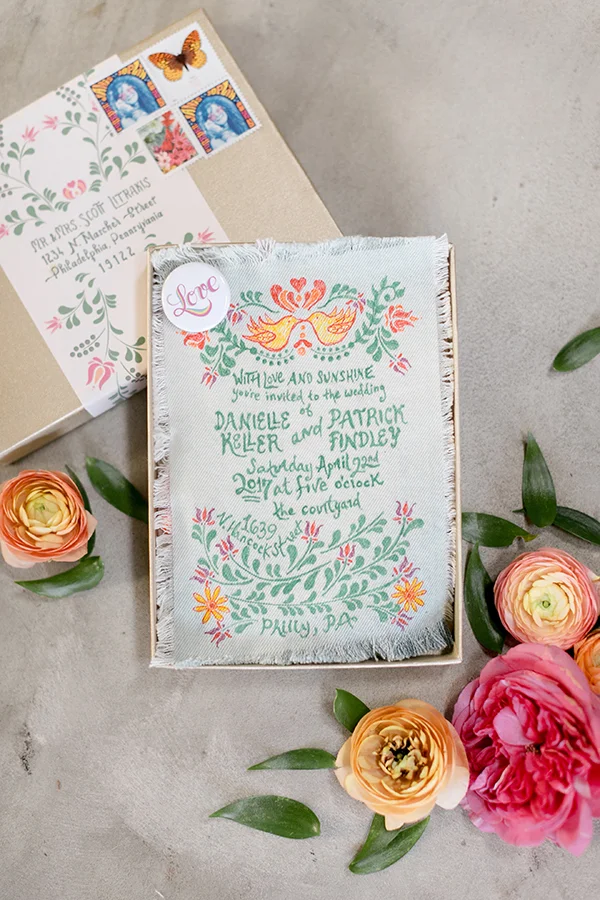 Mr & Mrs. Scott
1234 N Marches Street
Philadelphia, Pennsylvania
19122
Love
WITH LOVE AND SUNSHINE
you're invited to the wedding
of
DANIELLE and PATRICK
KELLER FINDLEY
Saturday April 22nd
2017 at five o'clock
the courtyard
1639
N. Hancock Street
Philly, PA